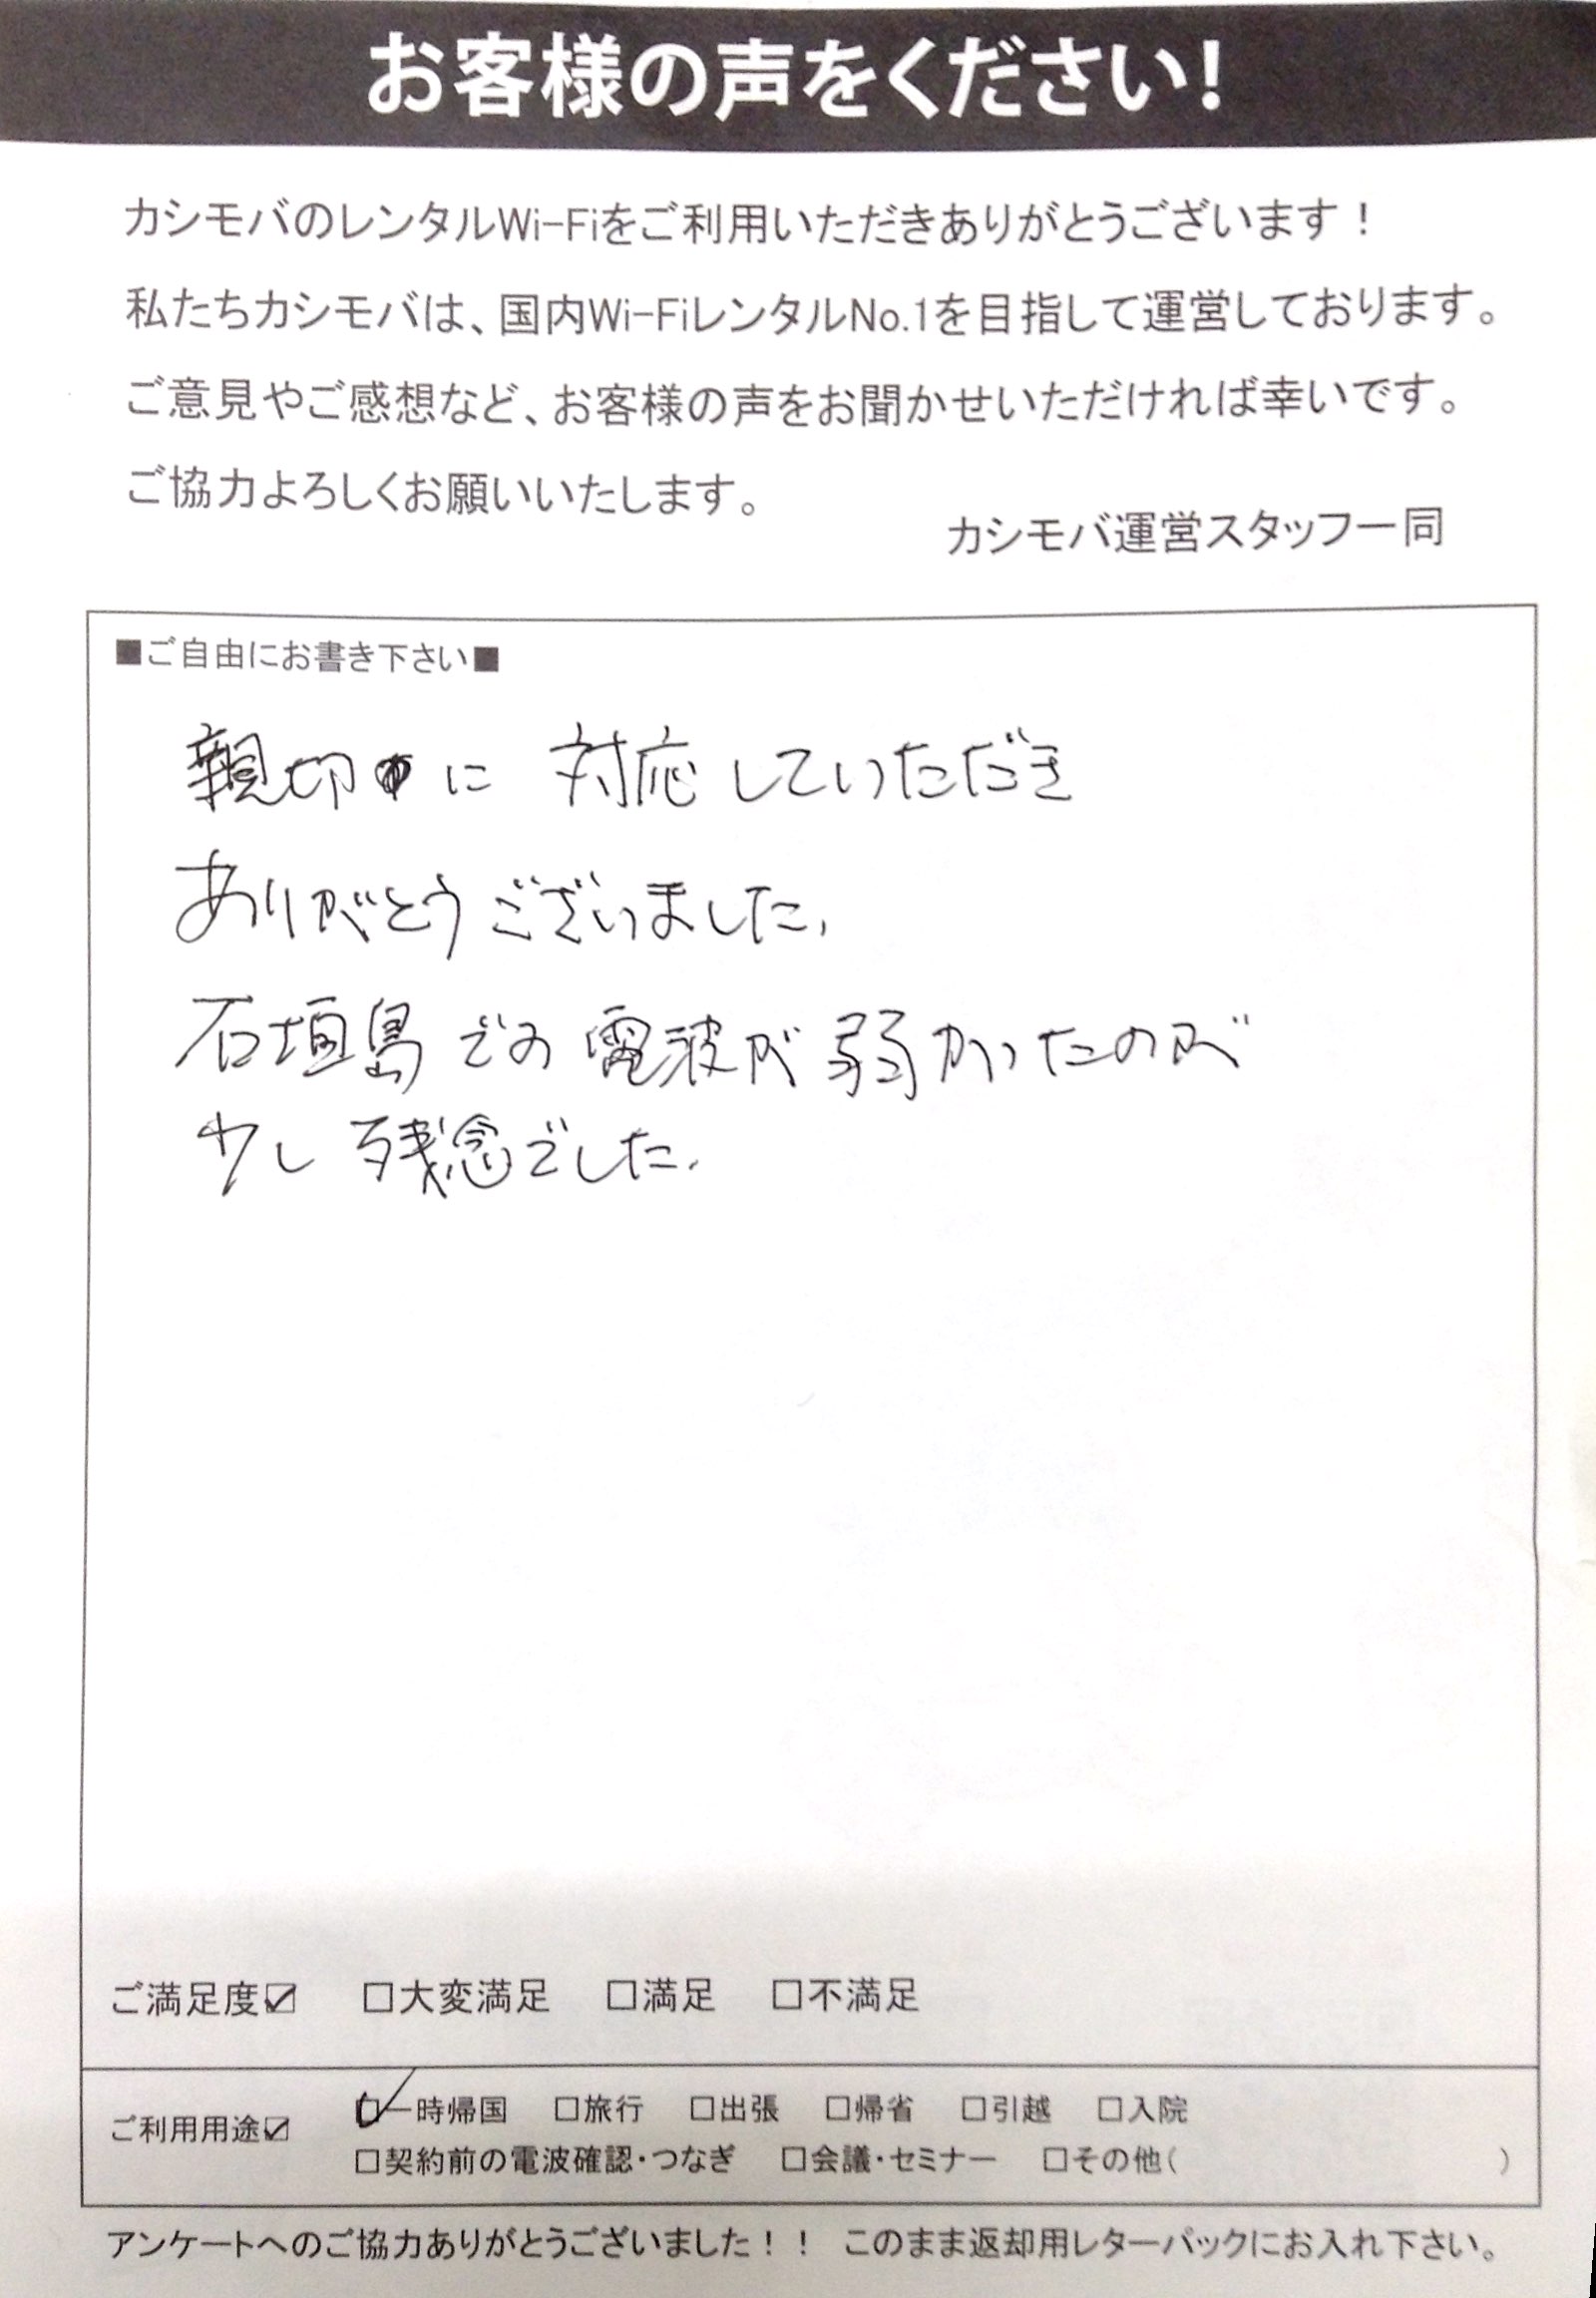 お客様の声をください!
カシモバのレンタルWi-Fiをご利用いただきありがとうございます！
私たちカシモバは、国内Wi-FiレンタルNo.1を目指して運営しております。
ご意見やご感想など、お客様の声をお聞かせいただければ幸いです。
ご協力よろしくお願いいたします。
カシモバ運営スタッフ一同
■ご自由にお書き下さい■
親切に 対応していただき
ありがとうございました.
石垣島での電波が弱かったのが
少し残念でした.
ご満足度☑ □大変満足 □満足 □不満足
ご利用用途☑ ☑一時帰国 □旅行 □出張 □帰省 □引越 □入院
□契約前の電波確認・つなぎ □会議・セミナー □その他( )
アンケートへのご協力ありがとうございました！！ このまま返却用レターパックにお入れ下さい。